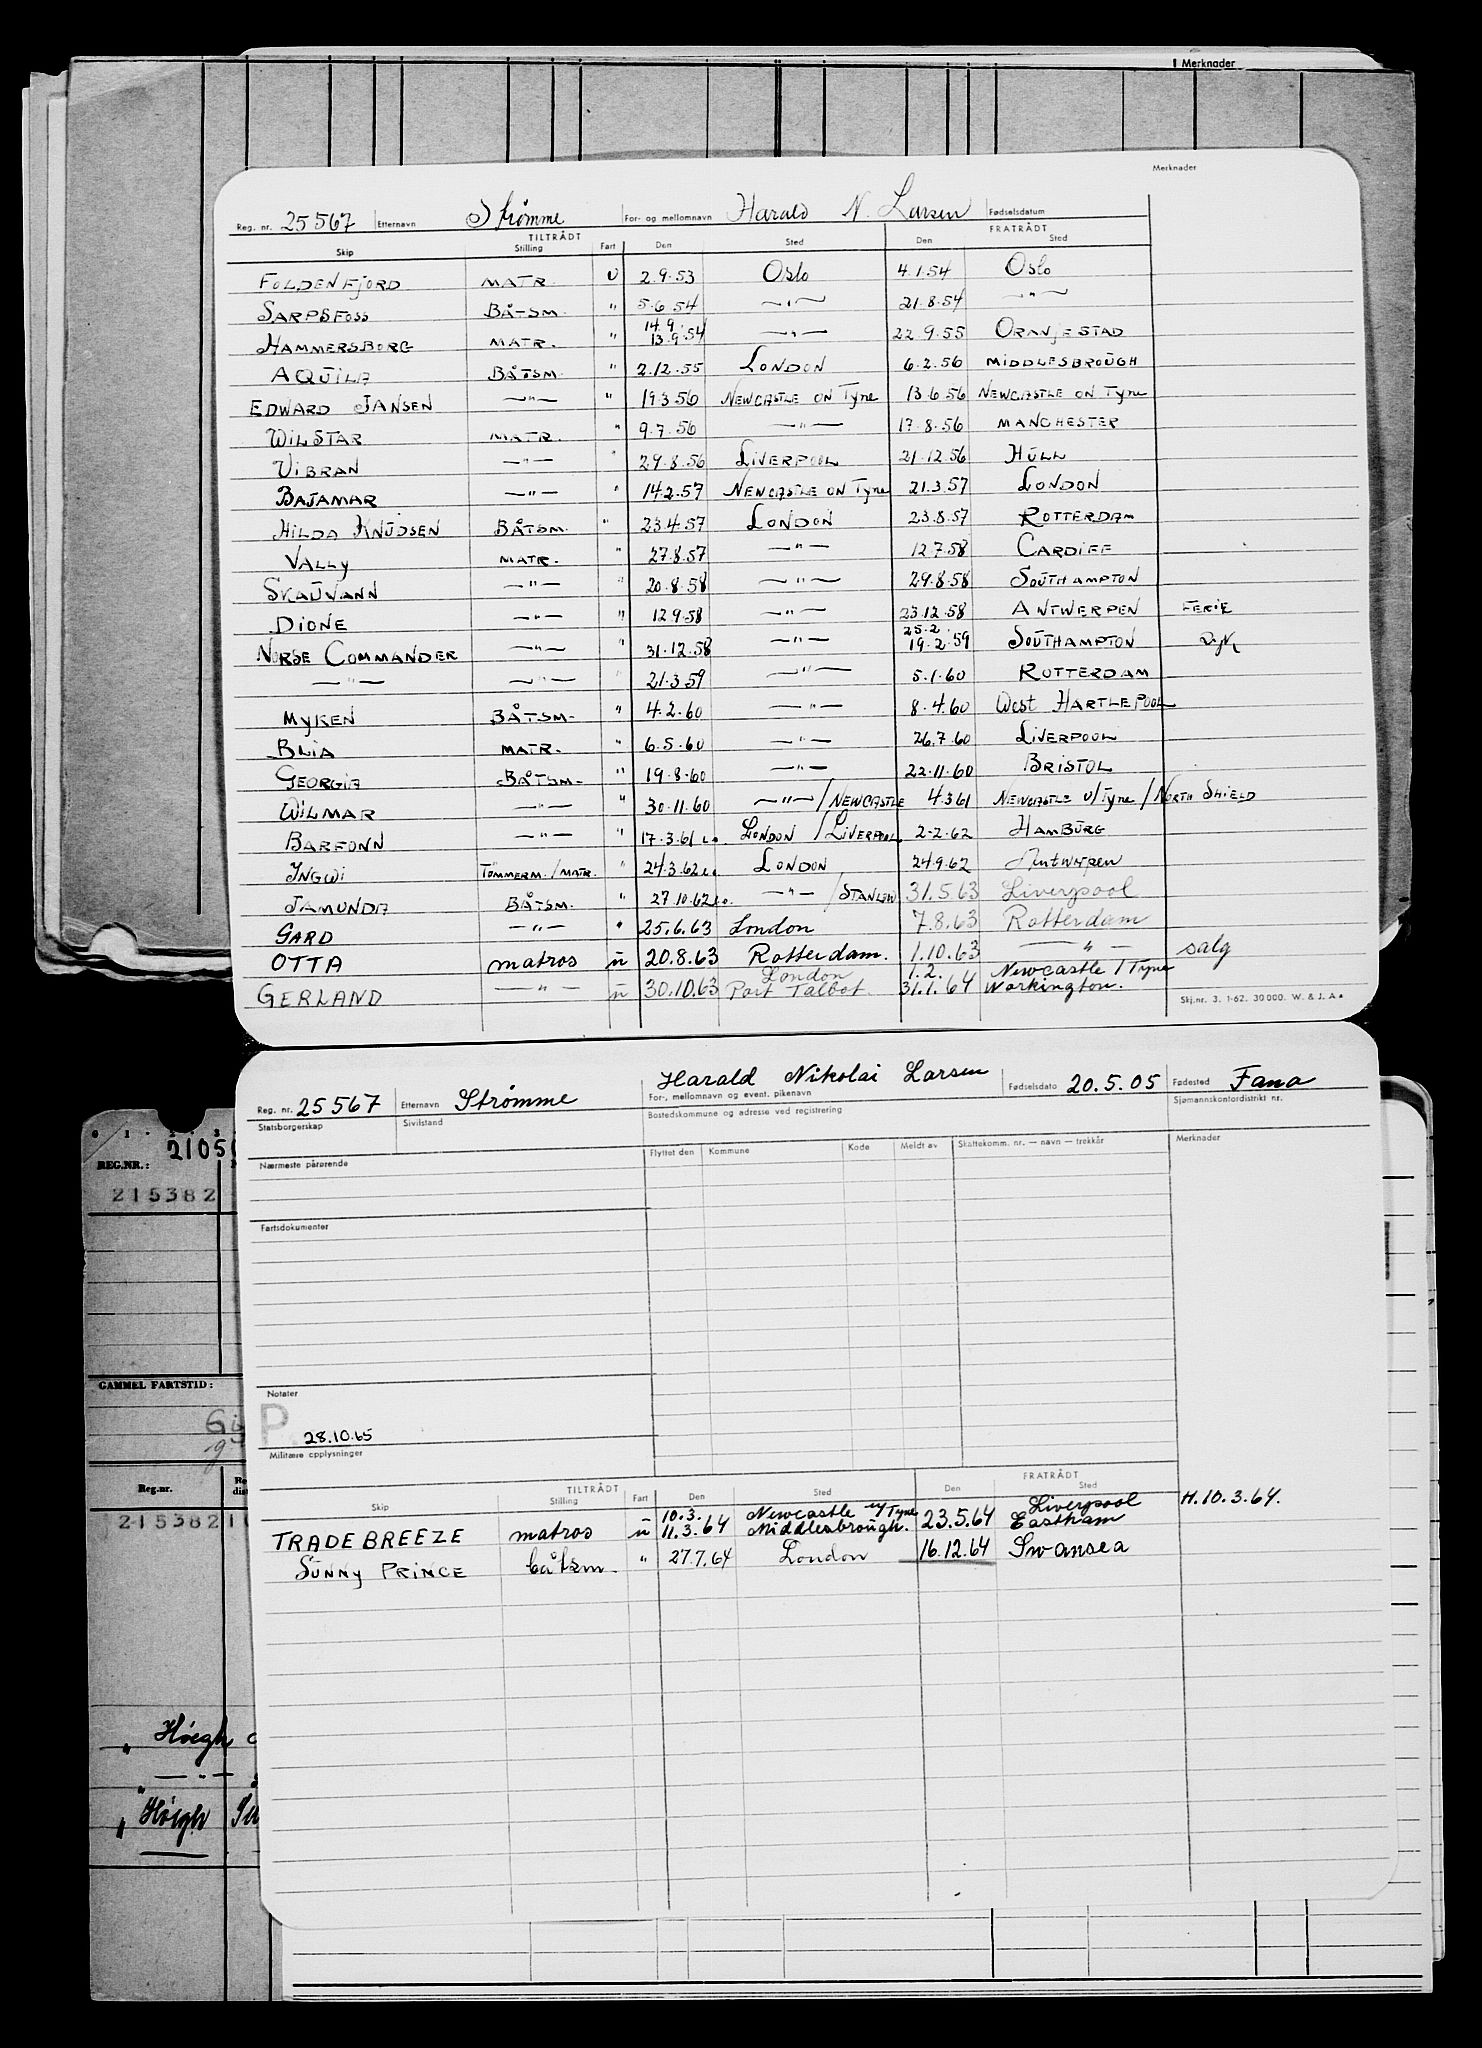 Merknader
Merknader
Reg. nr. 25567 Etternavn Strømme For- og mellomnavn Harald N. Larsen Fødselsdatum
TILTRÅDT FRATRÅDT
Skip Stilling Fart Den Sted Den Sted
FOLDENFJORD MATR. U 2.9.53 Oslo 4.1.54 Oslo
SARPSFOSS BÅTSM. " 5.6.54 —"— 21.8.54 —"—
14.9.
HAMMERSBORG MATR. " 13.9.54 —"— 22.9.55 ORANJESTAD
AQUILA BÅTSM. " 2.12.55 LONDON 6.2.56 MIDDLESBROUGH
EDWARD JANSEN —"— " 19.3.56 NEWCASTLE ON Tyne 13.6.56 NEWCASTLE ON Tyne
WILSTAR MATR. " 9.7.56 —"— 17.8.56 MANCHESTER
VIBRAN —"— " 29.8.56 LIVERPOOL 21.12.56 HULL
BAJAMAR —"— " 14.2.57 NEWCASTLE ON Tyne 21.3.57 LONDON
HILDA KNUDSEN BÅTSM. " 23.4.57 LONDON 23.8.57 ROTTERDAM
VALLY MATR. " 27.8.57 —"— 12.7.58 CARDIFF
SKAUVANN —"— " 20.8.58 —"— 29.8.58 SOUTHAMPTON
DIONE —"— " 12.9.58 —"— 23.12.58 ANTWERPEN FERIE
25.2.
NORSE COMMANDER —"— " 31.12.58 —"— 19.2.59 SOUTHAMPTON
—"— —"— 21.3.59 —"— 5.1.60 ROTTERDAM
MYKEN BÅTSM. " 4.2.60 —"— 8.4.60 West HARTLEPOOL
BLIA MATR. " 6.5.60 —"— 26.7.60 LIVERPOOL
GEORGIA BÅTSM. " 19.8.60 —"— 22.11.60 BRISTOL
WILMAR —"— " 30.11.60 —"— / NEWCASTLE 4.3.61 NEWCASTLE U/Tyne / NORTH SHIELD
BARFONN —"— " 17.3.61 LONDON / LIVERPOOL 2.2.62 HAMBURG
INGWI TØMMERM./MATR. " 24.3.62 LONDON 24.9.62 Antwerpen
JAMUNDA BÅTSM. " 27.10.62 —"— / STANLOW 31.5.63 Liverpool
GARD —"— " 25.6.63 London 7.8.63 Rotterdam
OTTA matros u 20.8.63 Rotterdam. 1.10.63 —"— salg
London 1.2. Newcastle / Tyne
GERLAND —"— u 30.10.63 Port Talbot. 31.1.64 Workington.
Skj.nr. 3. 1-62. 30 000. W. & J. A.
Harald Nikolai Larsen
Reg. nr. 25567 Etternavn Strømme For-, mellomnavn og event. pikenavn Fødselsdato 20.5.05 Fødested Fana
Statsborgerskap Sivilstand Bostedskommune og adresse ved registrering Sjømannskontordistrikt nr.
Nærmeste pårørende Flyttet den Kommune Kode Meldt av Skattekomm. nr. — navn — trekkår Merknader
Fartsdokumenter
Notater
P. 28.10.65
Militære opplysninger
TILTRÅDT FRATRÅDT
Skip Stilling Fart Den Sted Den Sted
10.3. Newcastle u/Tyne Liverpool H. 10.3.64.
TRADE BREEZE matros u 11.3.64 Middlesbrough. 23.5.64 Eastham
SUNNY PRINCE båtsm. " 27.7.64 London 16.12.64 Swansea
0 1 2 3
2105
REG.NR.:
215382
GAMMEL FARTSTID:
Reg.nr.
215382
" Høegh
—"—
" Høegh